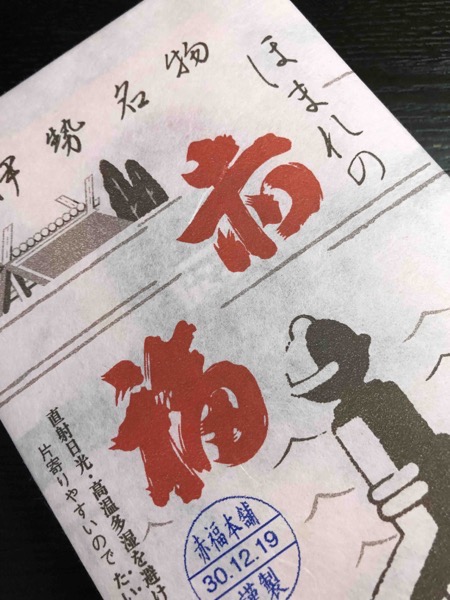 ほまれの
伊勢名物
赤福
直射日光・高温多湿を避け
片寄りやすいので、た
赤福本舗
30.12.19
謹製